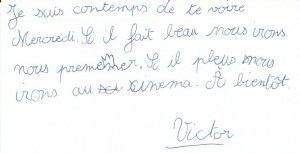 Je suis contemps de te voire
Mercredi. S il fait beau nous irons
nous premenner. S il pleus nous
irons au sinema. À bientôt.
Victor